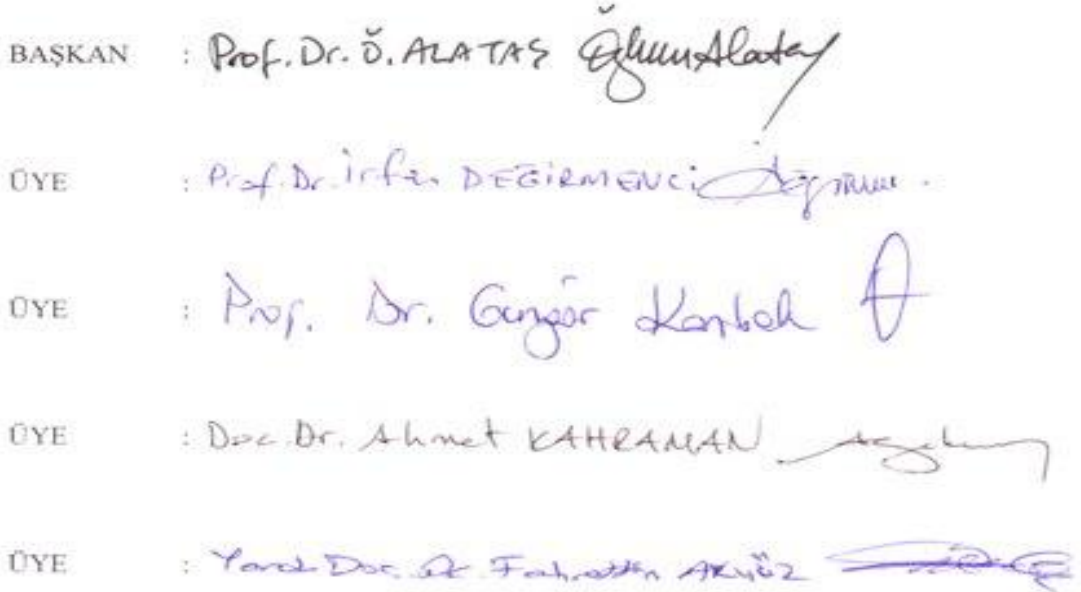 BAŞKAN : Prof. Dr. Ö. ALATAŞ
ÜYE : Prof. Dr. İrfan DEĞİRMENCİ
ÜYE : Prof. Dr. Güngör Kanbak
ÜYE : Doç. Dr. Ahmet KAHRAMAN
ÜYE : Yard. Doç. Dr. Fahrettin AKYÜZ